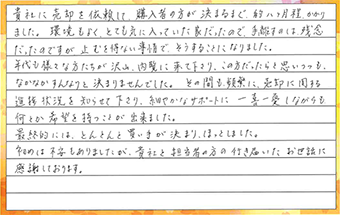 貴社に売却を依頼して、購入者の方が決まるまで、約八ヶ月程かかり
ました。環境もよく、とても気に入っていた家だったので、手離すのは残念
だったのですが止むを得ない事情で、そうすることになりました。
年代も様々な方たちが沢山、内覧に来て下さり、この方だったらと思いつつも、
なかなかすんなりと決まりませんでした。その間も頻繁に、売却に関する
進捗状況を知らせて下さり、細やかなサポートに一喜一憂しながらも
何とか希望を持つことが出来ました。
最終的には、とんとんと買い手が決まり、ほっとしました。
初めは不安もありましたが、貴社と担当者の方の行き届いた、お世話に
感謝しております。